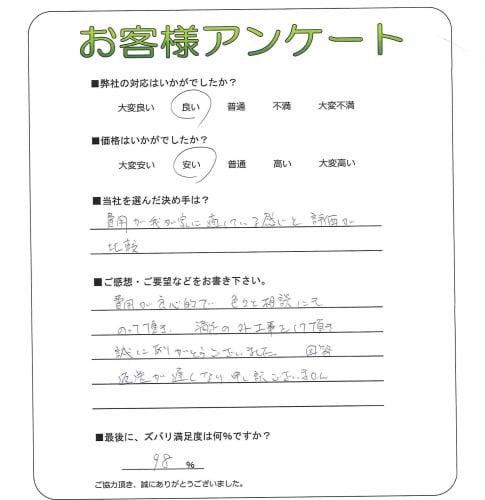 お客様アンケート
■弊社の対応はいかがでしたか?
大変良い 良い 普通 不満 大変不満
■価格はいかがでしたか?
大変安い 安い 普通 高い 大変高い
■当社を選んだ決め手は?
費用が我が家に適している感じと 評価が
比較
■ご感想・ご要望などをお書き下さい。
費用が良心的で 色々と相談にも
のって頂き、満足の 工事をして頂き
誠にありがとうございました 回答
返答が遅くなり申し訳ございません
■最後に、ズバリ満足度は何%ですか?
98 %
ご協力頂き、誠にありがとうございました。